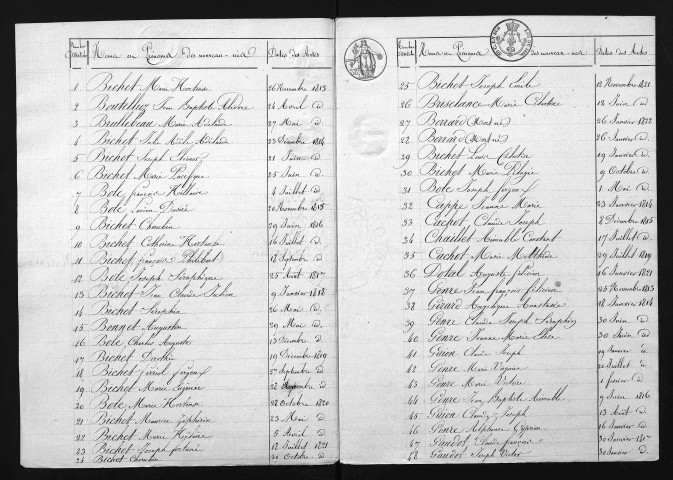 Noms et Prénoms des nouveau-nés Dates des Actes
1 Bichet Marie Hortense 26 Novembre 1813
2 Boutelluz Jean Baptiste 24 Avril d.
3 Brullebeau Marie Adelaide 27 Mai d.
4 Bichet Julie Adelaide 23 Décembre 1814
5 Bichet Joseph 21 Juin d.
6 Bichet Marie 25 Juin d.
7 Bole françois 4 Juillet d.
8 Bole Désiré 20 Novembre 1815
9 Bichet Cherubin 29 Juin 1816
10 Bichet Catherine Hortense 16 Juillet d.
11 Bichet françois Philibert 18 Septembre d.
12 Bole Joseph Séraphique 25 Août 1817
13 Bichet Jean Claude 9 Janvier 1818
14 Bichet Séraphin 26 Mai d.
15 Augustin 29 Mai d.
16 Bole Charles Auguste 13 Décembre d.
17 Bichet Dorothée 19 Décembre 1819
18 Bichet 27 Septembre d.
19 Bichet Marie Eugénie 22 Septembre d.
20 Bole Marie Hortense 28 Octobre 1820
21 Bichet Maurice Zéphirin 23 Mai d.
22 Bichet Marie 5 Avril d.
23 Bichet Joseph fortuné 12 Juillet 1821
24 Bichet Cherubin 21 Octobre d.
Noms et Prénoms des nouveau-nés Dates des Actes
25 Bichet Joseph Emile 12 Novembre 1821
26 Briselance Marie Célestine 12 Juin d.
27 Berrard (Mort né) 26 Janvier 1822
28 Berrard (Mort né) 26 Janvier d.
29 Bichet Louis Célestin 19 Janvier d.
30 Bichet Marie Pélagie 9 Octobre d.
31 Bole Joseph 1 Mai d.
32 Cappe Jeanne Marie 23 Janvier 1814
33 Cachot Claude Joseph 8 Décembre 1815
34 Chaillet Aimable Constant 17 Juillet d.
35 Cachot Marie Mathilde 29 Juillet 1819
36 Dolat Auguste félicien 16 Janvier 1821
37 Genre Jean françois félicien 25 Novembre 1813
38 Gérard Angelique Anastasie 18 Janvier 1814
39 Genre Claude Joseph Séraphin 30 Juin d.
40 Genre Jeanne Marie 30 Juin d.
41 Guion Claude Joseph 19 Janvier d.
42 Genre Marie Virginie 21 Juillet d.
43 Genre Marie 1 fevrier d.
44 Genre Jean Baptiste Aimable 9 Juin 1816
45 Guion Claude Joseph 13 Août d.
46 Genre Alphonse Cyprien 16 Janvier d.
47 Gaudot Claude françois 30 Janvier 1817
48 Gaudot Joseph Victor 30 Janvier d.